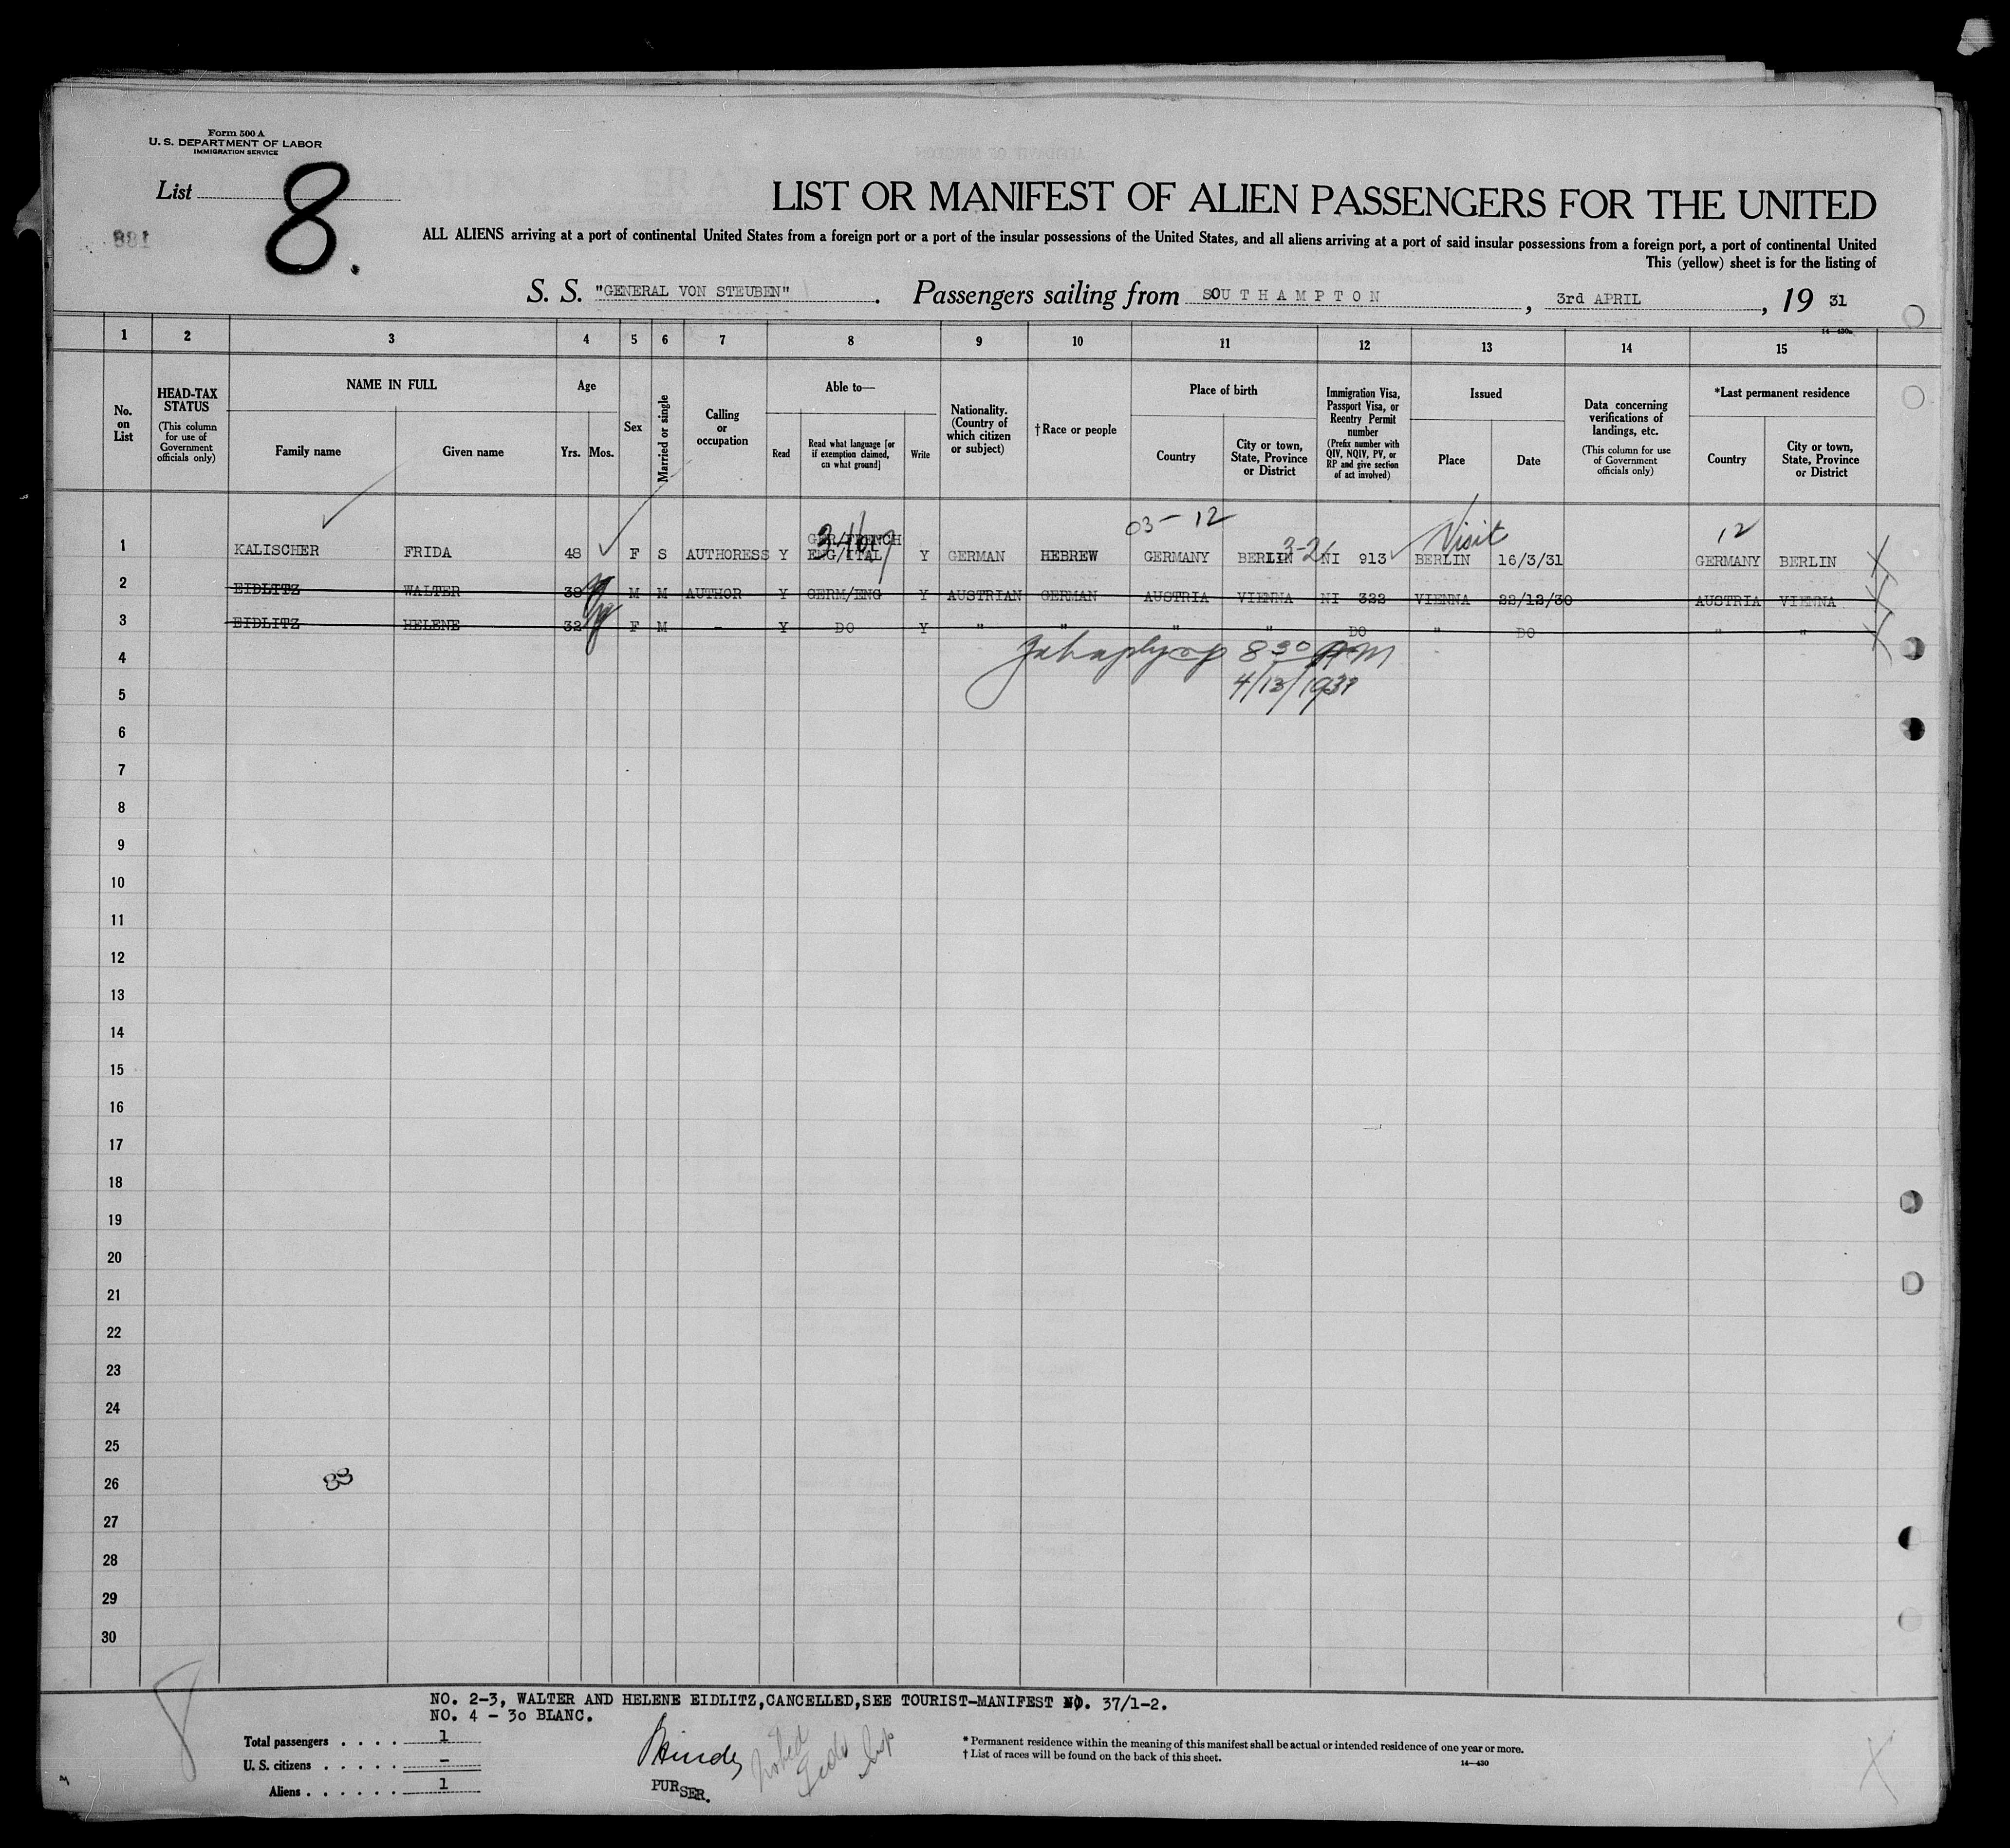 Form 500 A
U. S. DEPARTMENT OF LABOR
IMMIGRATION SERVICE
List 8.
LIST OR MANIFEST OF ALIEN PASSENGERS FOR THE UNITED
ALL ALIENS arriving at a port of continental United States from a foreign port or a port of the insular possessions of the United States, and all aliens arriving at a port of said insular possessions from a foreign port, a port of continental United
This (yellow) sheet is for the listing of
S. S. "GENERAL VON STEUBEN" . Passengers sailing from SOUTHAMPTON , 3rd APRIL , 19 31
14—430a
1 2 3 4 5 6 7 8 9 10 11 12 13 14 15
No. on List
HEAD-TAX STATUS (This column for use of Government officials only)
NAME IN FULL
Family name Given name
Age
Yrs. Mos.
Sex
Married or single
Calling or occupation
Able to—
Read Read what language [or if exemption claimed, on what ground] Write
Nationality. (Country of which citizen or subject)
†Race or people
Place of birth
Country City or town, State, Province or District
Immigration Visa, Passport Visa, or Reentry Permit number (Prefix number with QIV, NQIV, PV, or RP and give section of act involved)
Issued
Place Date
Data concerning verifications of landings, etc. (This column for use of Government officials only)
*Last permanent residence
Country City or town, State, Province or District
03-12 Visit 12
1 KALISCHER FRIDA 48 F S AUTHORESS Y GER/FRENCH ENG/ITAL Y GERMAN HEBREW GERMANY BERLIN 3-2 NI 913 BERLIN 16/3/31 GERMANY BERLIN
2 EIDLITZ WALTER 38 M M AUTHOR Y GERM/ENG Y AUSTRIAN GERMAN AUSTRIA VIENNA NI 322 VIENNA 22/12/30 AUSTRIA VIENNA
3 EIDLITZ HELENE 32 F M - Y DO Y " " " " DO " DO " "
4 8 30 AM
5 4/13/1931
6
7
8
9
10
11
12
13
14
15
16
17
18
19
20
21
22
23
24
25
26
27
28
29
30
8
NO. 2-3, WALTER AND HELENE EIDLITZ,CANCELLED,SEE TOURIST-MANIFEST NO. 37/1-2.
NO. 4 - 30 BLANC.
Total passengers . . . . 1
U. S. citizens . . . . . -
Aliens . . . . . . 1
PURSER.
* Permanent residence within the meaning of this manifest shall be actual or intended residence of one year or more.
† List of races will be found on the back of this sheet.
14—430